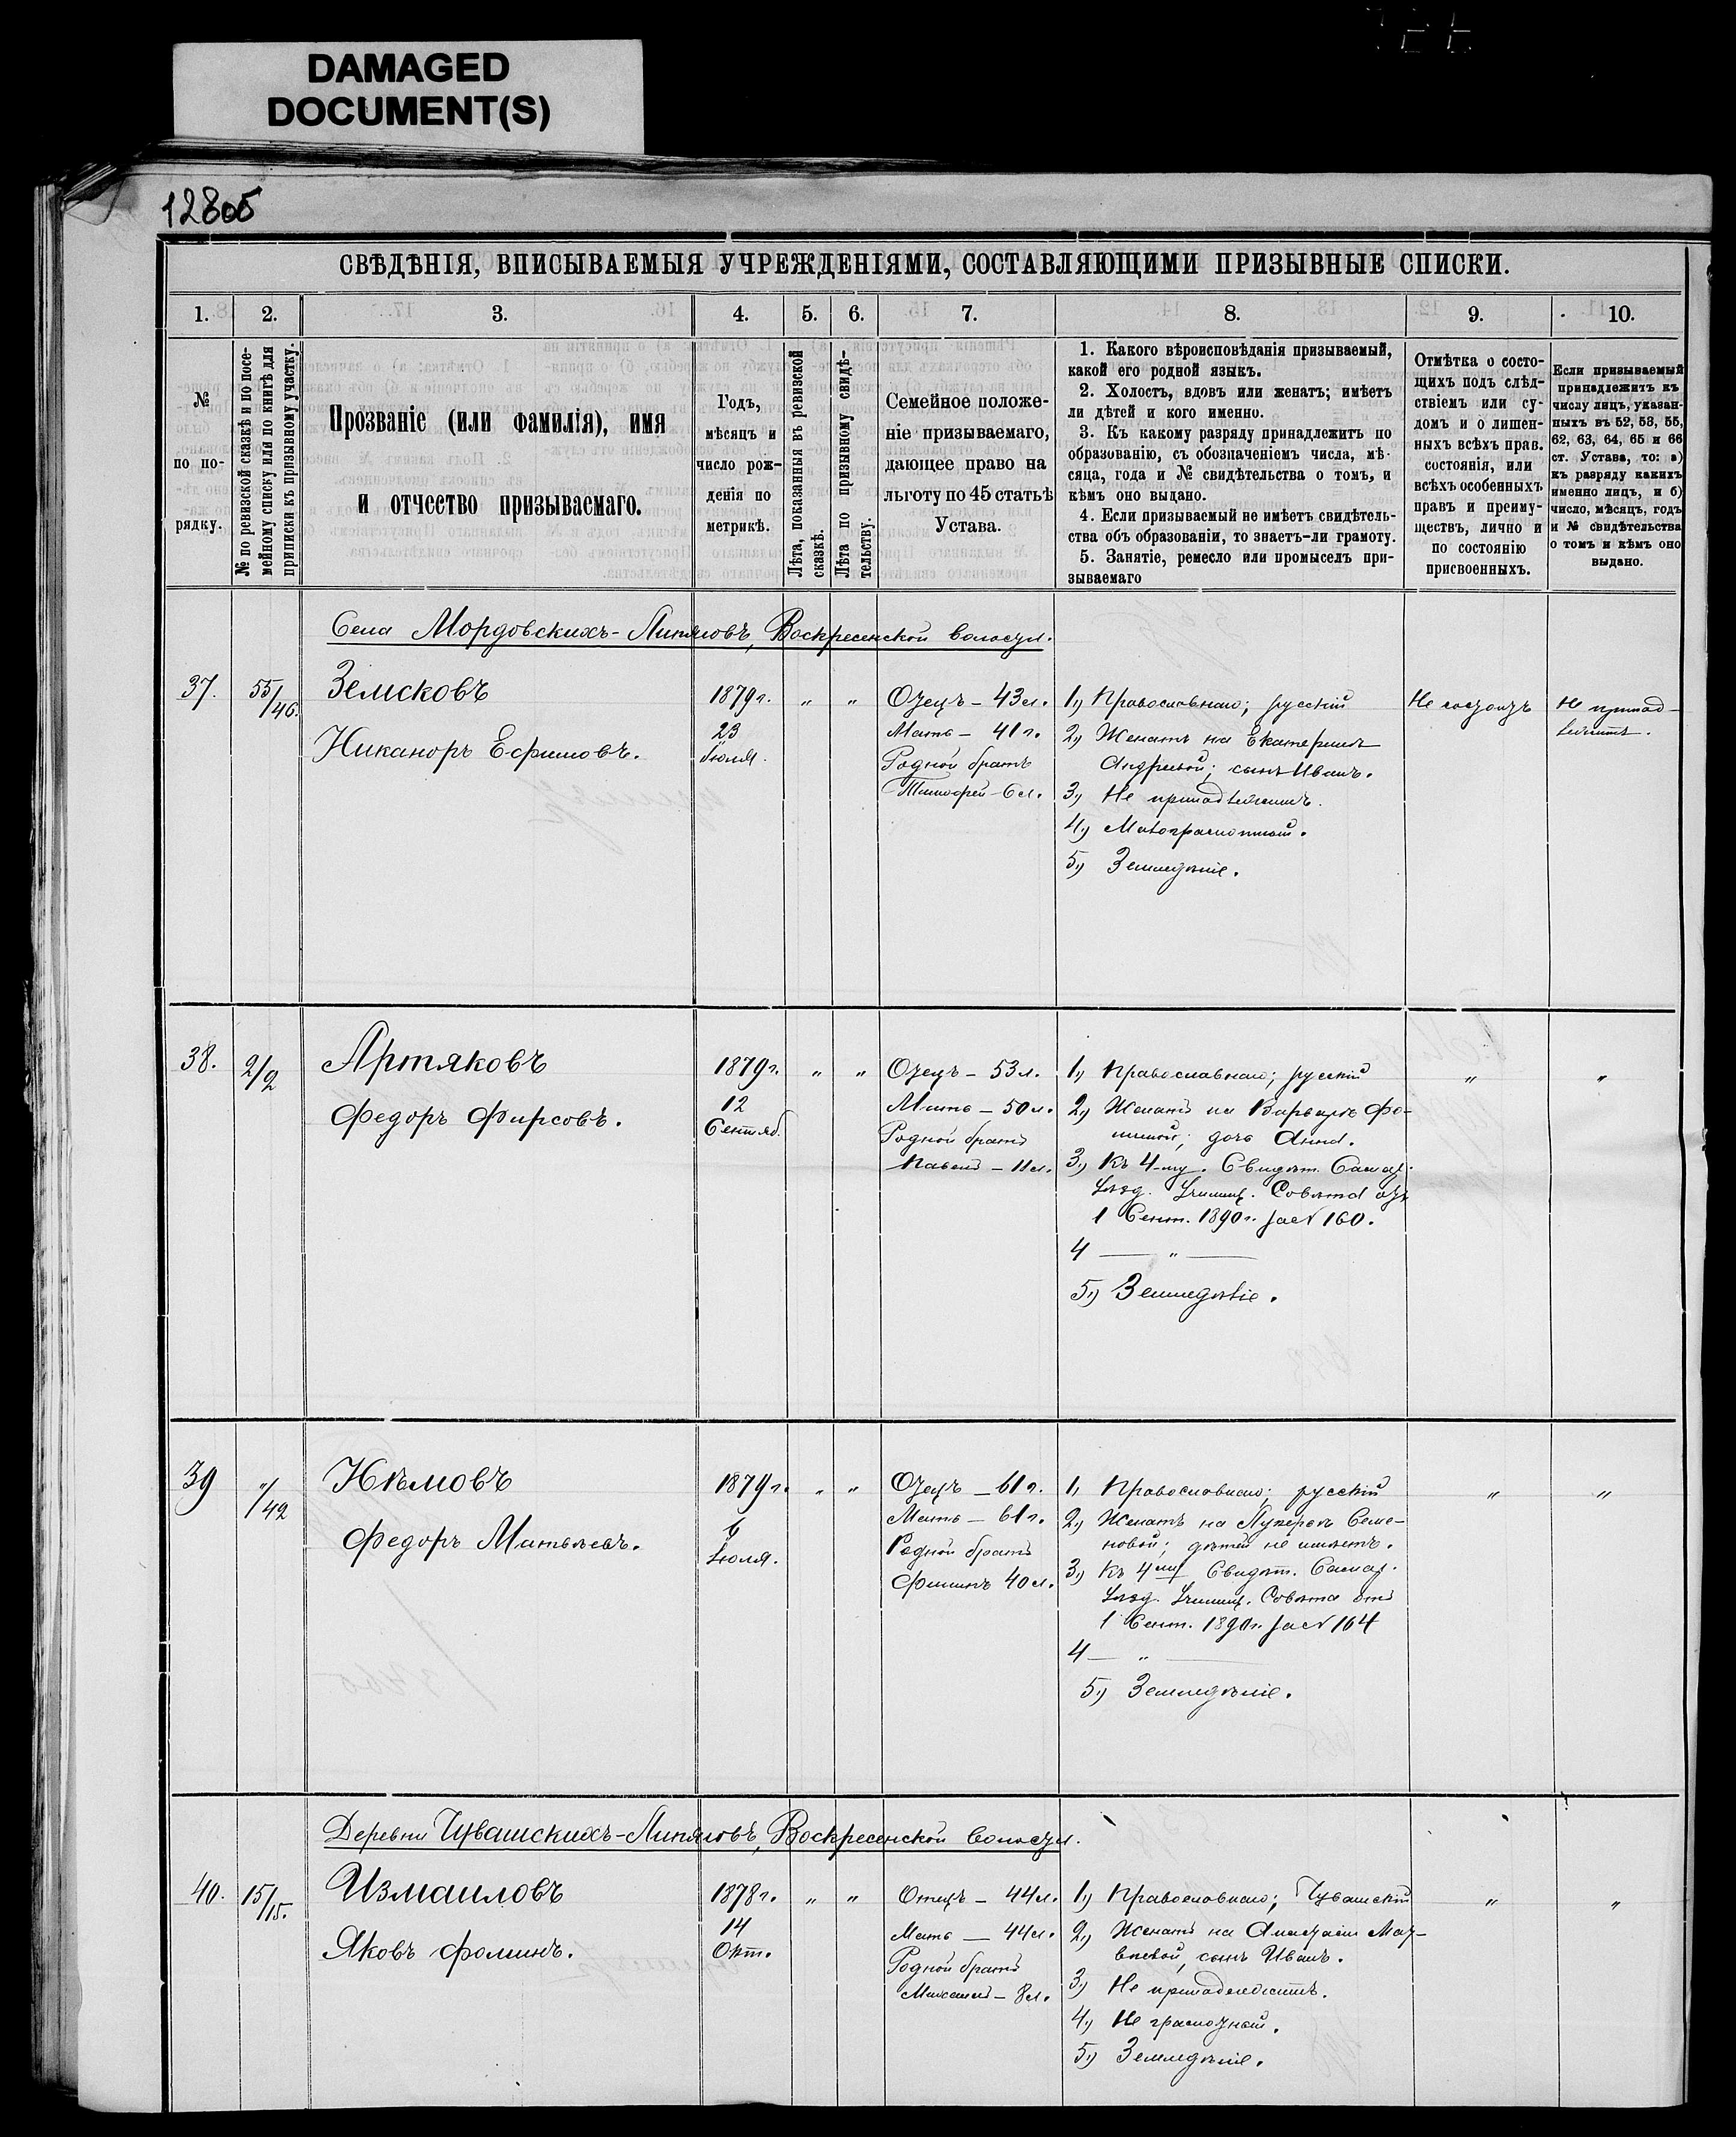 DAMAGED
DOCUMENT(S)
12805
СВѢДѢНІЯ, ВПИСЫВАЕМЫЯ УЧРЕЖДЕНІЯМИ, СОСТАВЛЯЮЩИМИ ПРИЗЫВНЫЕ СПИСКИ.
1. 2. 3. 4. 5. 6. 7. 8. 9. 10.
№
по по-
рядку.
№ по ревизской сказкѣ и по посе-
мейному списку или по книгѣ для
приписки къ призывному участку.
Прозваніе (или фамилія), имя
и отчество призываемаго.
Годъ,
мѣсяцъ и
число рож-
денія по
метрикѣ.
Лѣта, показанныя въ ревизской
сказкѣ.
Лѣта по призывному свидѣ-
тельству.
Семейное положе-
ніе призываемаго,
дающее право на
льготу по 45 статьѣ
Устава.
1. Какого вѣроисповѣданія призываемый,
какой его родной языкъ.
2. Холостъ, вдовъ или женатъ; имѣетъ
ли дѣтей и кого именно.
3. Къ какому разряду принадлежитъ по
образованію, съ обозначеніемъ числа, мѣ-
сяца, года и № свидѣтельства о томъ, и
кѣмъ оно выдано.
4. Если призываемый не имѣетъ свидѣтель-
ства объ образованіи, то знаетъ-ли грамоту.
5. Занятіе, ремесло или промыселъ при-
зываемаго
Отмѣтка о состо-
щихъ подъ слѣд-
ствіемъ или су-
домъ и о лишен-
ныхъ всѣхъ прав.
состоянія, или
всѣхъ особенныхъ
правъ и преиму-
ществъ, лично и
по состоянію
присвоенныхъ.
Если призываемый
принадлежитъ къ
числу лицъ, указан-
ныхъ въ 52, 53, 55,
62, 63, 64, 65 и 66
ст. Устава, то: а)
къ разряду какихъ
именно лицъ, и б)
число, мѣсяцъ, годъ
и № свидѣтельства
о томъ и кѣмъ оно
выдано.
Села Мордовскихъ-Липяговъ, Воскресенской волости.
37.
55/46.
Земсковъ
Никаноръ Ефимовъ.
1879 г.
23
Іюля.
" "
Отецъ – 43 л.
Мать – 41 г.
Родной братъ
Тимофей – 6 л.
1) Православнаго; русскій
2) Женатъ на Екатеринѣ
Андреевой; сынъ Иванъ.
3) Не принадлежитъ.
4) Малограмотный.
5) Земледѣліе.
Не состоитъ
Не принад-
лежитъ.
38.
2/2
Артяковъ
Федоръ Фирсовъ.
1879 г.
12
Сентяб.
" "
Отецъ – 53 л.
Мать – 50 л.
Родной братъ
Павелъ – 11 л.
1) Православнаго; русскій
2) Женатъ на Варварѣ Фо-
миной; дочь Анна.
3) Къ 4-му. Свидѣт. Самар.
Уѣзд. Училищ. Совѣта отъ
1 Сент. 1890 г. за № 160.
4 — " —
5) Земледѣліе.
" "
39
"/42
Нѣмовъ
Федоръ Матвѣевъ.
1879 г.
6
Іюля.
" "
Отецъ – 61 г.
Мать – 61 г.
Родной братъ
Филипъ 40 л.
1, Православнаго; русскій
2) Женатъ на Лукерьѣ Семе-
новой; дѣтей не имѣетъ.
3) Къ 4му Свидѣт. Самар.
Уѣзд. Училищ. Совѣта отъ
1 Сент. 1890 г. за № 164
4 — " —
5) Земледѣліе.
" "
Деревни Чувашскихъ-Липяговъ, Воскресенской волости.
40.
15/15.
Измаиловъ
Яковъ Фоминъ.
1878 г.
14
Окт.
" "
Отецъ – 44 л.
Мать – 44 л.
Родной братъ
Михаилъ – 8 л.
1) Православнаго; Чувашскій
2) Женатъ на Анастасіи Мат-
вѣевой, сынъ Иванъ.
3) Не принадлежитъ.
4) Не грамотный.
5) Земледѣліе.
" "